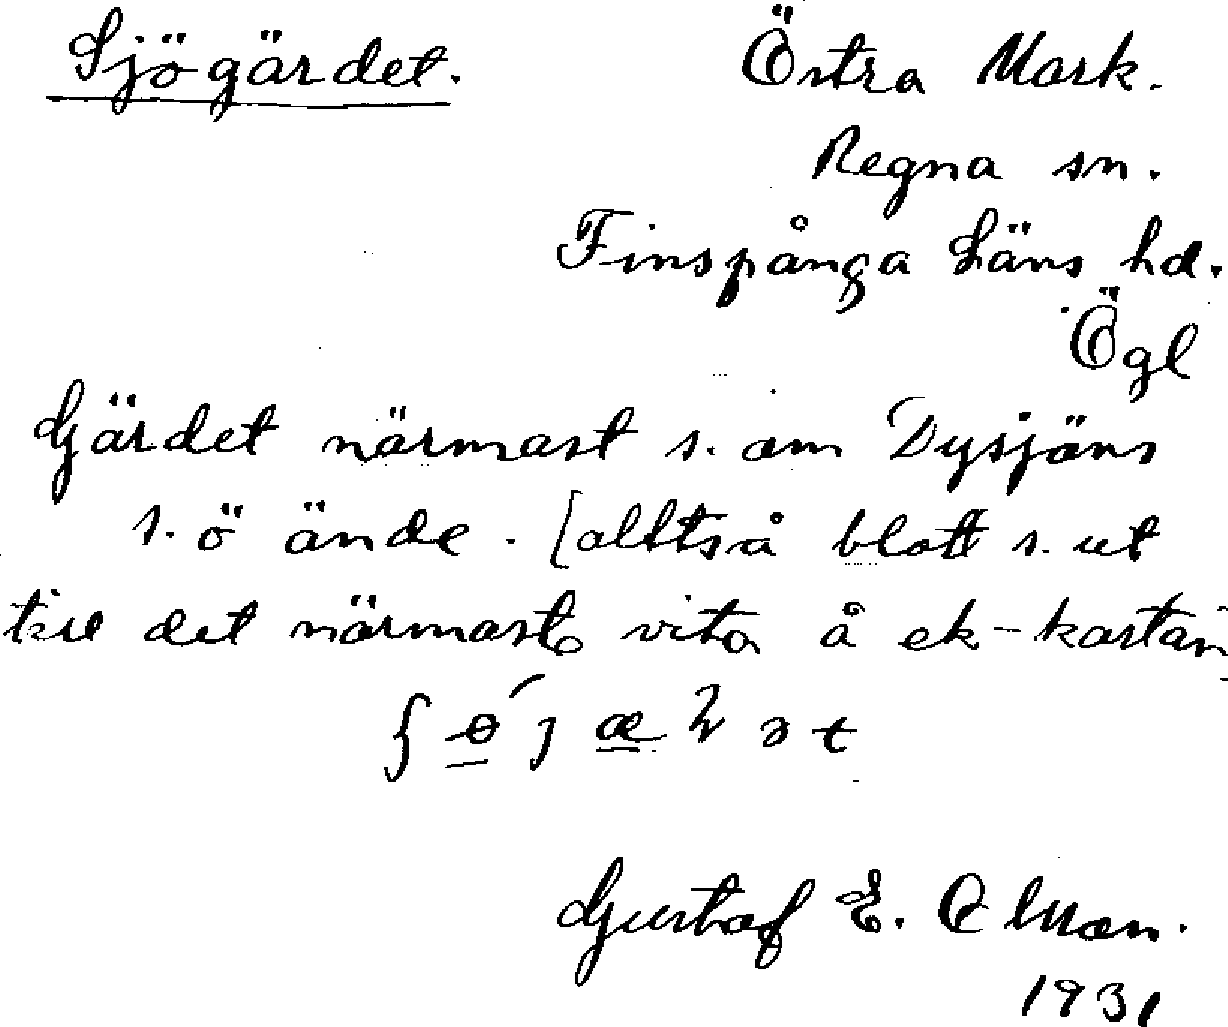 Sjögärdet. Östra Mark.
Regna sn.
Finspånga Läns hd.
Ögl
Gärdet närmast s. om Dysjöns
s. ö ände. [alltså blott s. ut
till det närmaste vita å ek-kartan
Gustaf E. Olman.
1931